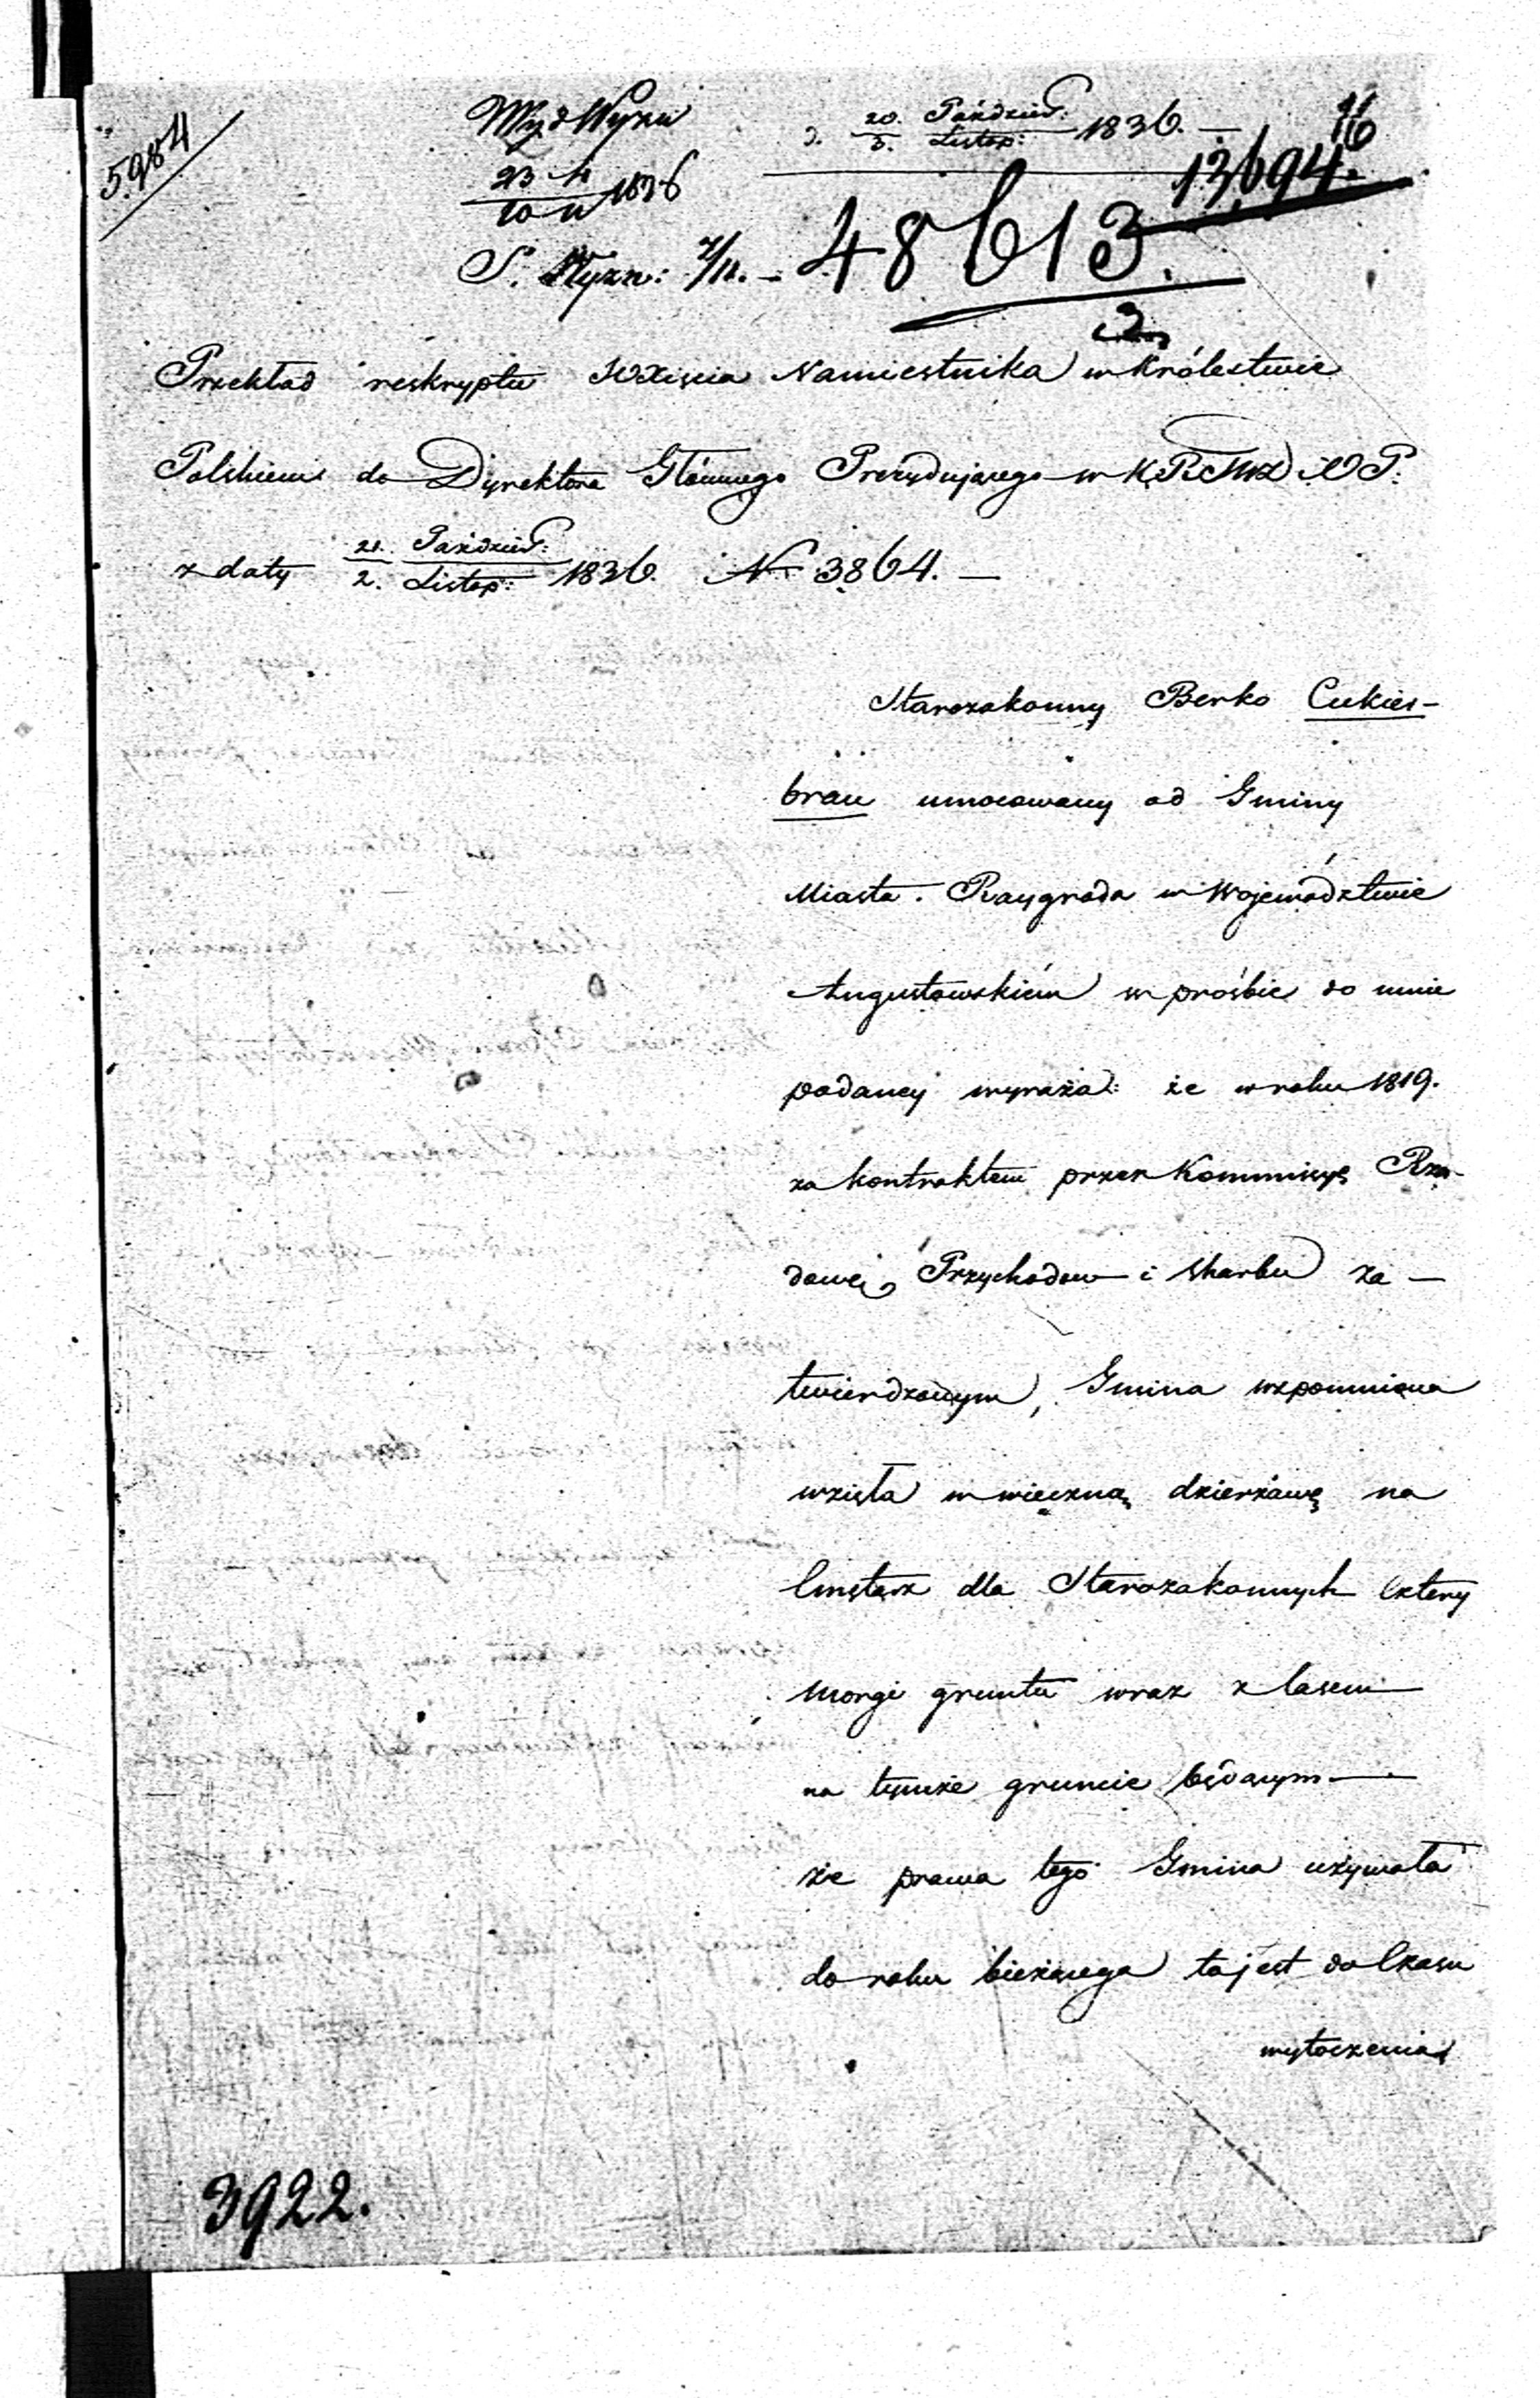 5984
Wyd Wyzn
23 4
10 11 1836
S. Wyzn: 7/11. –
d. 20. Paździer: 1836. –
3. Listop:
13694.
48613.
Przekład reskryptu JOXięcia Namiestnika w Królestwie
Polskiem do Dyrektora Głównego Prezydującego w KRSWD i OP:
z daty 21. Paździer: 1836. N 3864. –
2. Listop:
Starozakonny Berko Cukier-
brau umocowany od Gminy
Miasta Raygroda w Województwie
Augustowskiém w prośbie do mnie
podaney wyraża: że w roku 1819.
za kontraktem przez Kommissyę Rzą-
dowęj Przychodow i Skarbu za –
twierdzonym, Gmina wzpomniona
wzięła w wieczną dzierżawę na
Cmętarz dla Starozakonnych Cztery
Morgi gruntu wraz z lasem
na tymże gruncie będącym –
że prawa tego Gmina używała
do roku bieżącego to jest do Czasu
wytoczenia
3922.